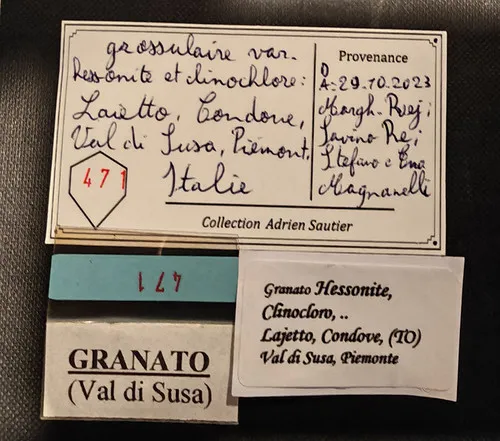 grossulaire var.
Hessonite et clinochlore:
Lajetto, Condove,
Val di Susa, Piémont,
Italie
471
Provenance
D
A: 29.10.2023
Margh.
Savino Re;
Stefano e Ema
Magnanelli
Collection Adrien Sautier
471
GRANATO
(Val di Susa)
Granato Hessonite,
Clinocloro, ..
Lajetto, Condove, (TO)
Val di Susa, Piemonte